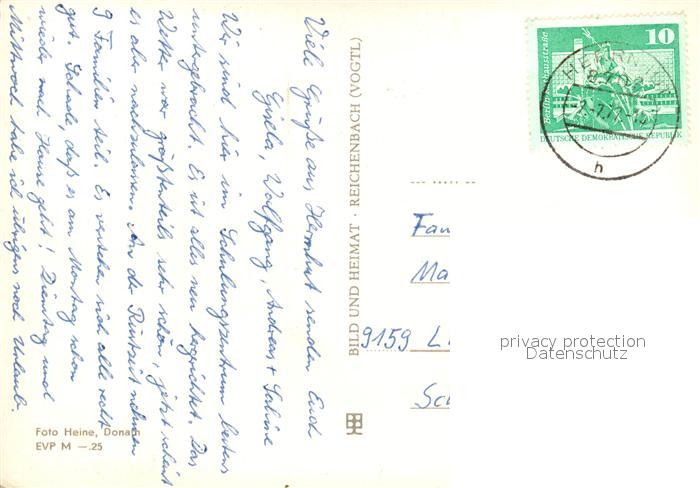 Viele Grüße aus Herrnhut senden Euch
Gisela, Wolfgang, Andreas + Sabine
Wir sind hier im Schulungszentrum bestens
untergebracht. Es ist alles neu hergerichtet. Das
Wetter war größtenteils sehr schön, jetzt scheint
es aber nachzulassen. An der Rüstzeit nehmen
9 Familien teil. Es verstehen sich alle recht
gut. Schade, daß es am Montag schon
wieder nach Hause geht! Dienstag und
Mittwoch habe ich übrigens noch Urlaub.
Foto Heine, Donath
EVP M —.25
BILD UND HEIMAT · REICHENBACH (VOGTL)
10
Berlin, Rathausstraße
DEUTSCHE DEMOKRATISCHE REPUBLIK
h
Fam
Ma
9159 L
Sc
privacy protection
Datenschutz